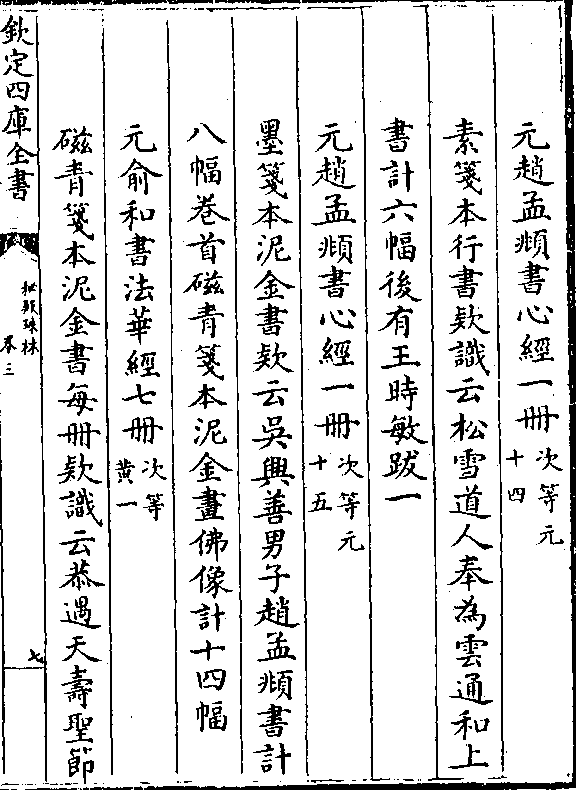 元趙孟頫書心經一冊次等元十四
素箋本行書欵識云松雪道人奉為雲通和上
書計六幅後有王時敏跋一
元趙孟頫書心經一冊次等元十五
墨箋本泥金書欵云吳興善男子趙孟頫書計
八幅卷首磁青箋本泥金畫佛像計十四幅
元俞和書法華經七冊次等黄一
磁青箋本泥金書每冊欵識云恭遇天壽聖節
欽定四庫全書
秘殿珠林
卷三
七